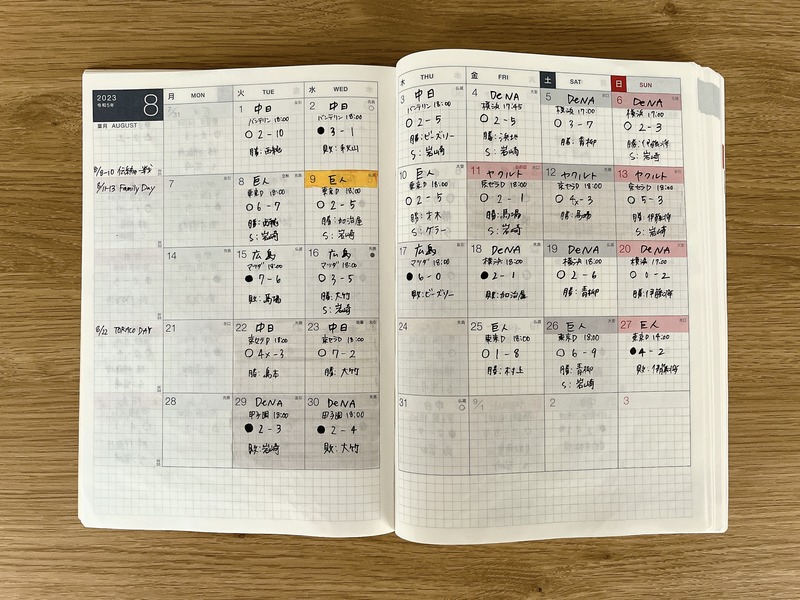 2023
令和5年
8
葉月 AUGUST
月 MON
火 TUE
水 WED
木 THU
金 FRI
土 SAT
日 SUN
7/31
1 中日
バンテリン 18:00
○ 2-10
勝:西純
2 中日
バンテリン 18:00
● 3-1
3 中日
バンテリン 18:00
○ 2-5
勝:ビーズリー
S:岩崎
4 DeNA
横浜 17:45
○ 2-5
勝:浜地
S:岩崎
5 DeNA
横浜 17:00
○ 3-7
勝:青柳
6 DeNA
横浜 17:00
○ 2-3
勝:伊藤将
S:岩崎
8/11-13 Family Day
7
8 巨人
東京D 18:00
○ 6-7
勝:西純
S:岩崎
9 巨人
東京D 18:00
○ 2-5
勝:加治屋
S:岩崎
10 巨人
東京D 18:00
○ 2-5
勝:才木
S:ケラー
11 ヤクルト
京セラD 18:00
○ 2-1
勝:馬場
S:岩崎
12 ヤクルト
京セラD 18:00
○ 4x-3
勝:馬場
13 ヤクルト
京セラD 18:00
○ 5-3
勝:伊藤将
S:岩崎
14
15 広島
マツダ 18:00
● 7-6
敗:馬場
16 広島
マツダ 18:00
○ 3-5
勝:大竹
S:岩崎
17 広島
マツダ 18:00
● 6-0
敗:ビーズリー
18 DeNA
横浜 18:00
● 2-1
敗:加治屋
19 DeNA
横浜 18:00
○ 2-6
勝:青柳
20 DeNA
横浜 17:00
○ 0-2
勝:伊藤将
8/22 TORACO DAY
21
22 中日
京セラD 18:00
○ 4x-3
勝:島本
23 中日
京セラD 18:00
○ 7-2
勝:大竹
24
25 巨人
東京D 18:00
○ 1-8
勝:村上
26 巨人
東京D 18:00
○ 6-9
勝:青柳
S:岩崎
27 巨人
東京D 14:00
● 4-2
敗:伊藤将
28
29 DeNA
甲子園 18:00
● 2-3
敗:岩崎
30 DeNA
甲子園 18:00
● 2-4
敗:大竹
31
9/1
2
3